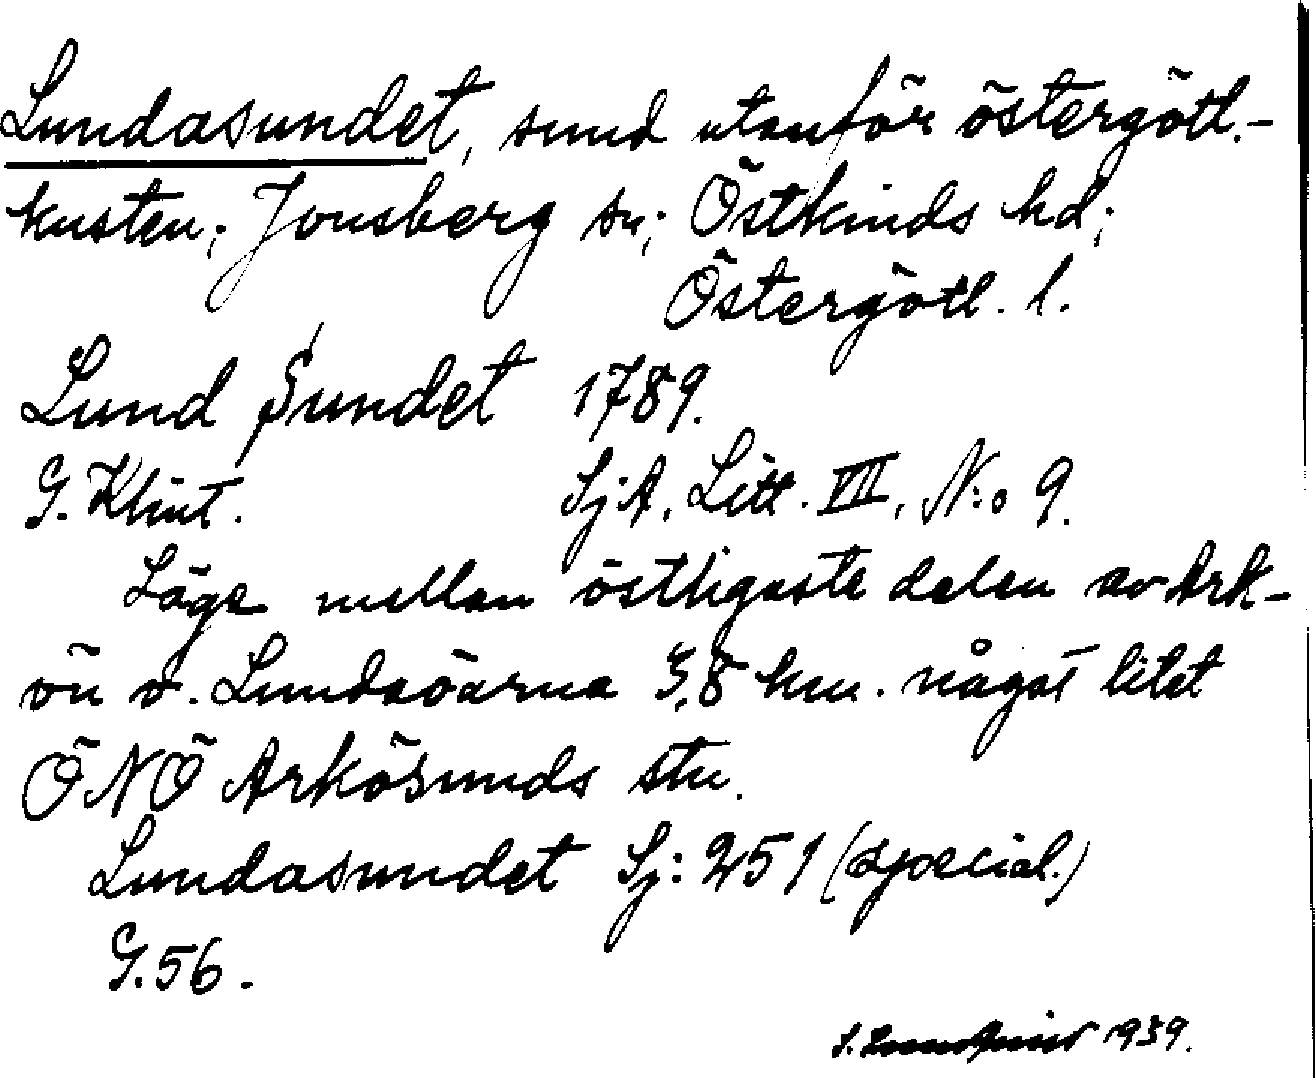 Lundasundet, sund utanför östergötl.-
kusten; Jonsberg sn; Östkinds hd;
Östergötl. l.
Lund Sundet 1789.
G. Klint. SjA, Litt. VII, N:o 9.
Läge mellan östligaste delen av Ark-
ön o. Lundaöarna 3,8 km. något litet
ÖNÖ Arkösunds stn.
Lundasundet Sj: 251 (special.)
G. 56.
1939.